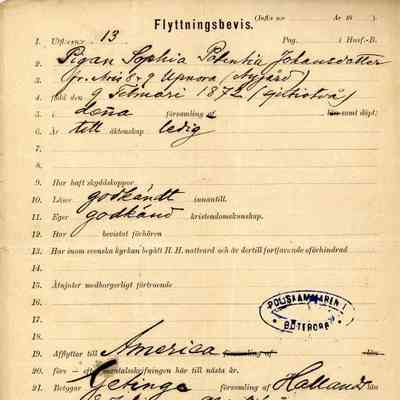 (Införd n:o År 18 )
Flyttningsbevis.
1. Utfl.attest n:r 13 Pag. i Husf.-B.
2. Pigan Sophia Johansdotter
3. fr. No 8 & 9 Upnora (Nygård)
4. född d. 9 Februari 1872 (sjuttiotvå)
5. i denna församling af län samt döpt;
6. Är till äktenskap ledig
7.
8.
9. Har haft skyddskoppor
10. Läser godkändt innantill.
11. Eger godkänd kristendomskunskap.
12. Har bevistat förhören
13. Har inom svenska kyrkan begått H. H. nattvard och är dertill fortfarande oförhindrad
14.
15. Åtnjuter medborgerligt förtroende
16.
17.
18.
POLISKAMMAREN
GÖTEBORG
19. Afflyttar till America församling af län
20. före – efter mantalsskrifningen här till nästa år.
21. Betygar Getinge församling af Hallands län